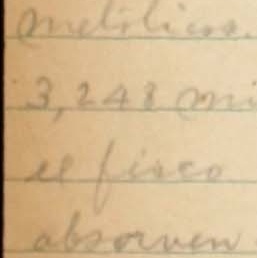 metálicas.
3,248 mi
el fisco
absorven